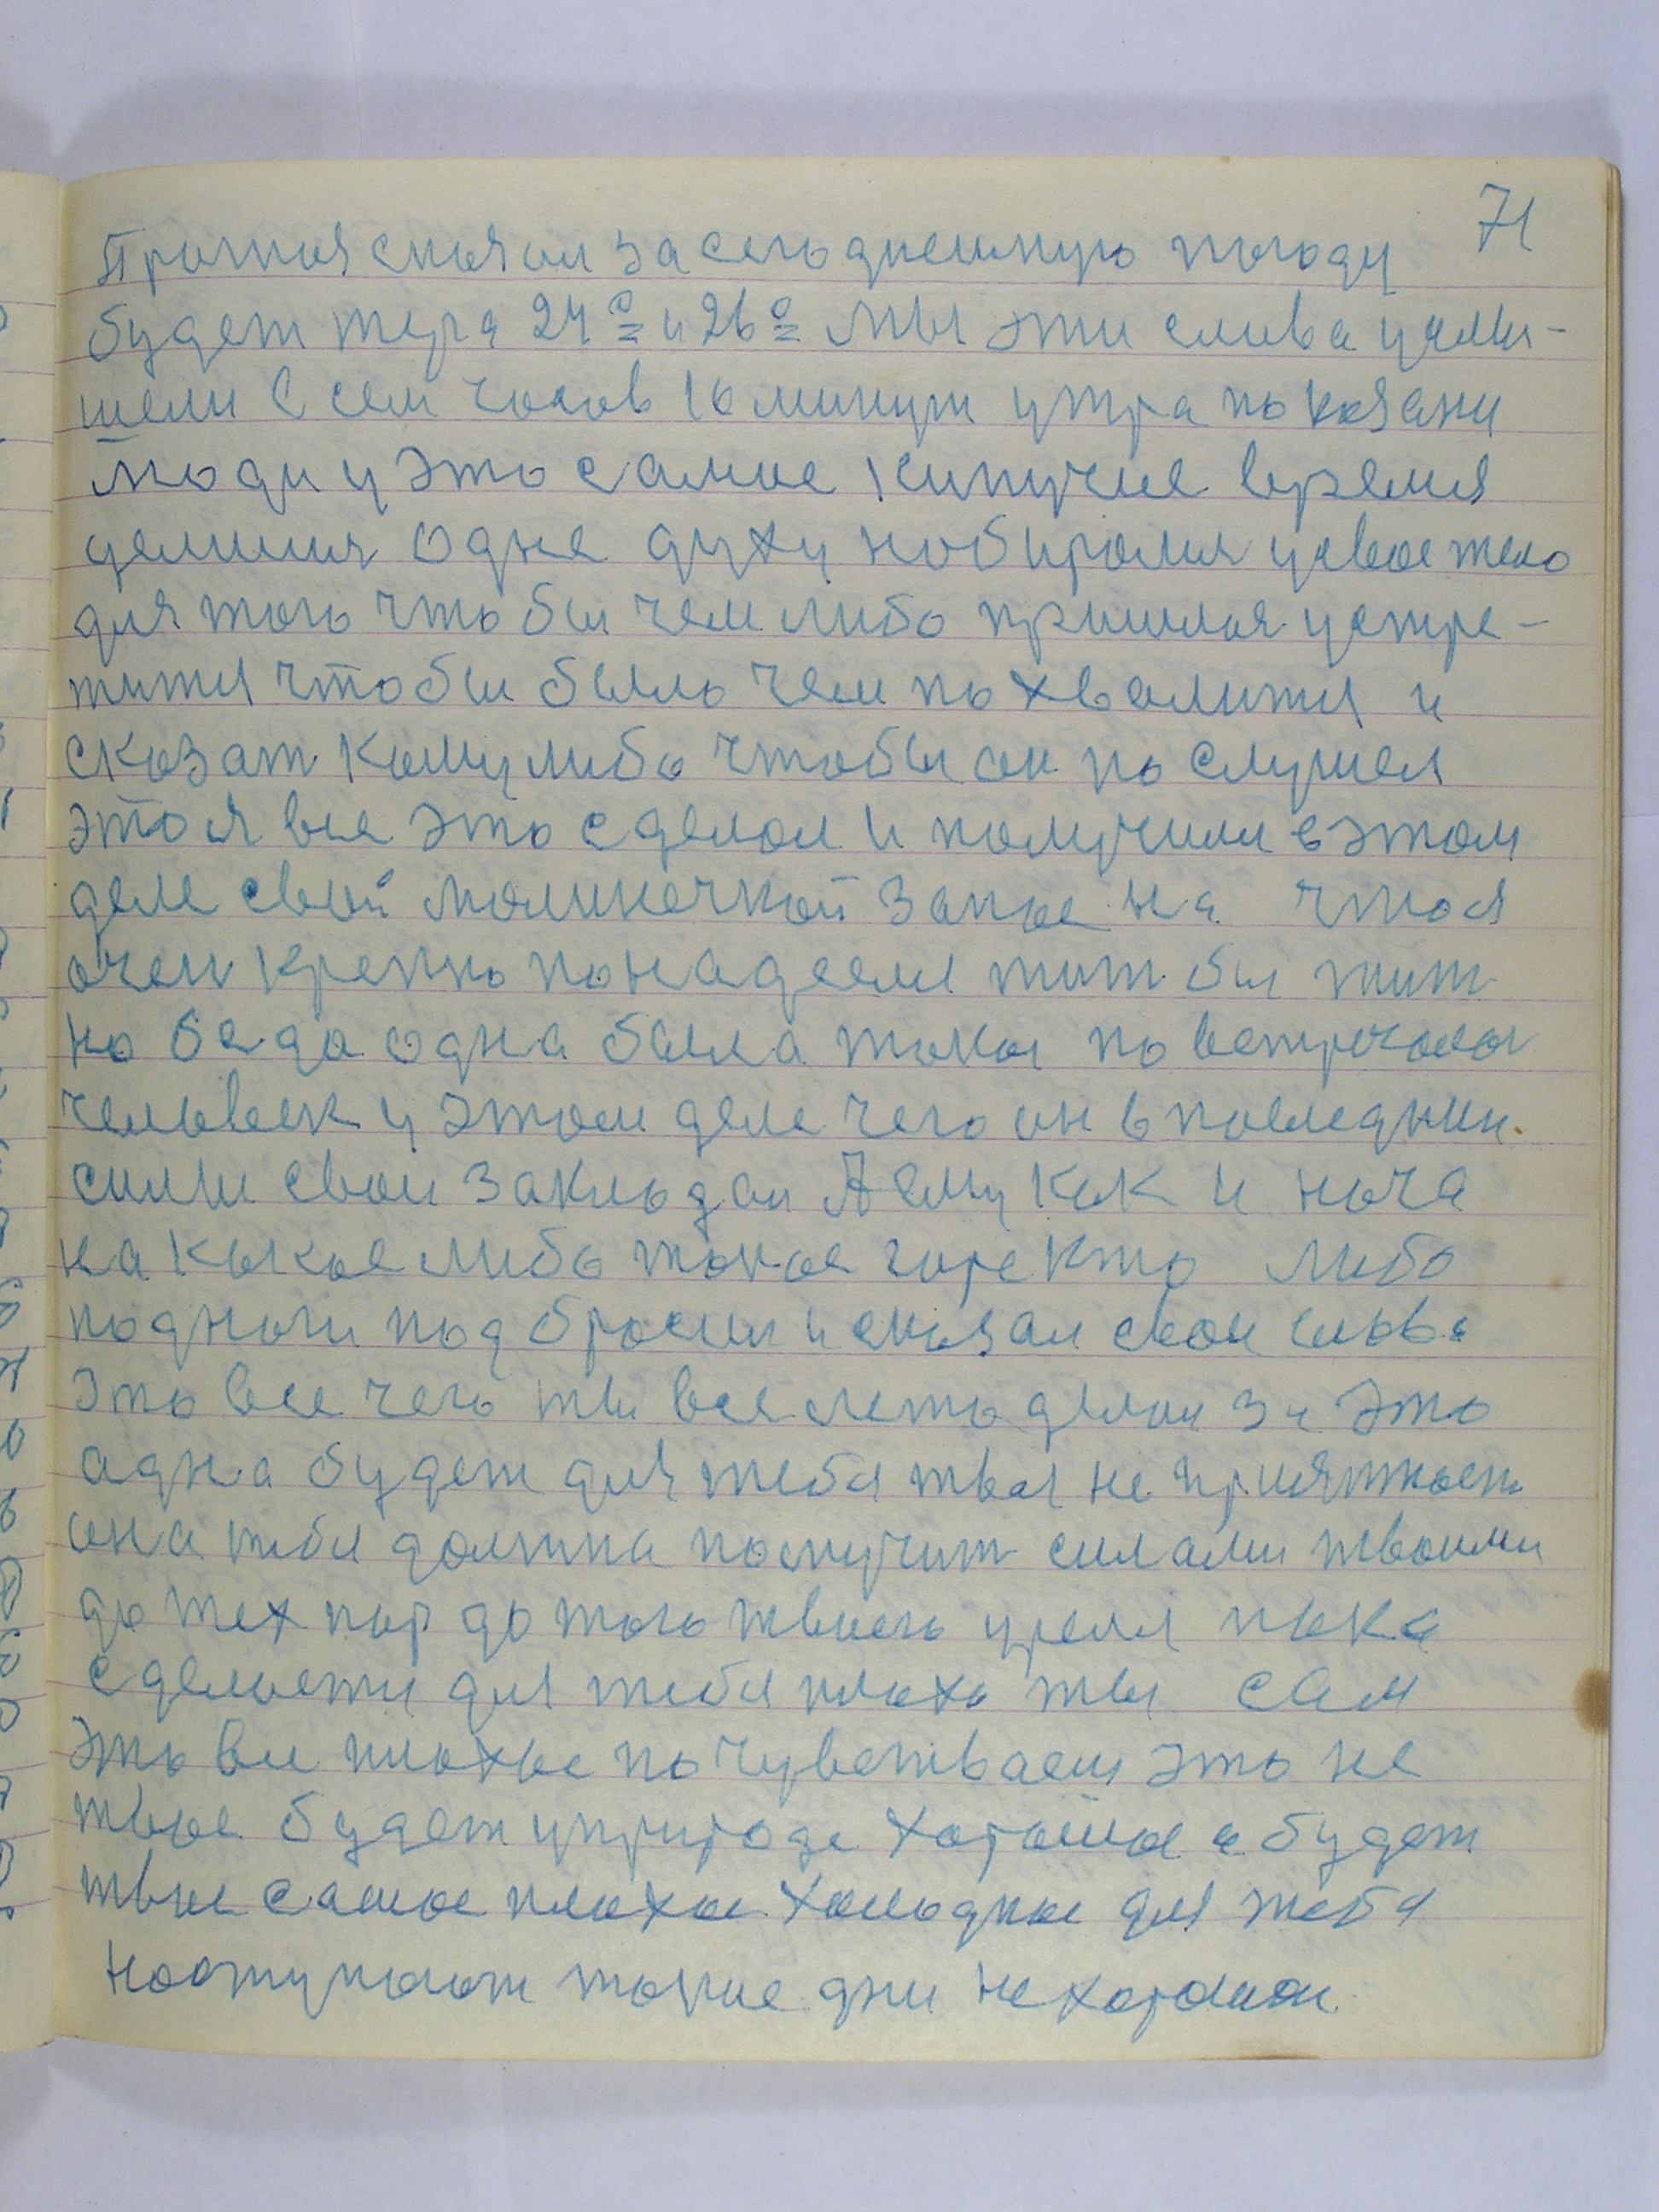 71
Прогноя скозал за сегоднешную погоду
будет тепла 24º и 26º Мы эти слова услы-
шели в сем часов 10 минут утра по казани
люди у это самое кипучие время
делился одне духу нобиролия усвое тело
для того что бы чем либо пришлося устре-
тится чтобы было чем похвалится и
сказат кому либо чтобы он послушел
это я все это сделол и получили в этом
деле свой молинечкой запас на что я
очен крепко понадеелся жит бы жит
но беда одна была токоя повстречалося
человек у этом деле чего он в последнии
силы свои закльдал А ему как и ноча
на какое либо токое горе кто либо
под ноги подбросил и сказал свои слова
Это все чего ты все лето делол за это
адна будет для тебя твоя не приятност
она тебя должна помучит силами твоими
до тех пор до того твоего уремя пока
сделается для тебя плохо ты сам
это все плохое почувстваеш это не
твое будет уприроде хорошое а будет
твое самое плохое холодное для тебя
ноступают токие дни не хорошои